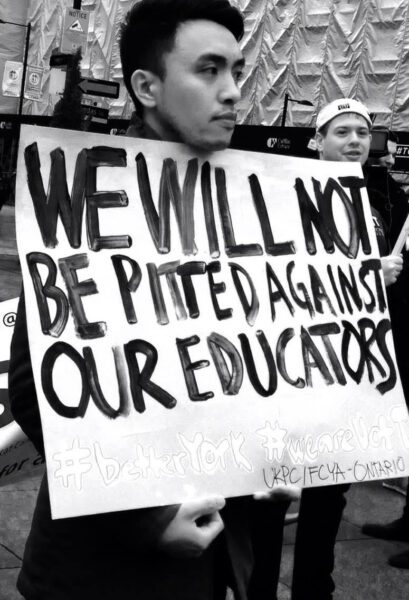 NOTICE
WE WILL NOT
BE PITTED AGAINST
OUR EDUCATORS
#betterYork
UKPC/FCYA-ONTARIO